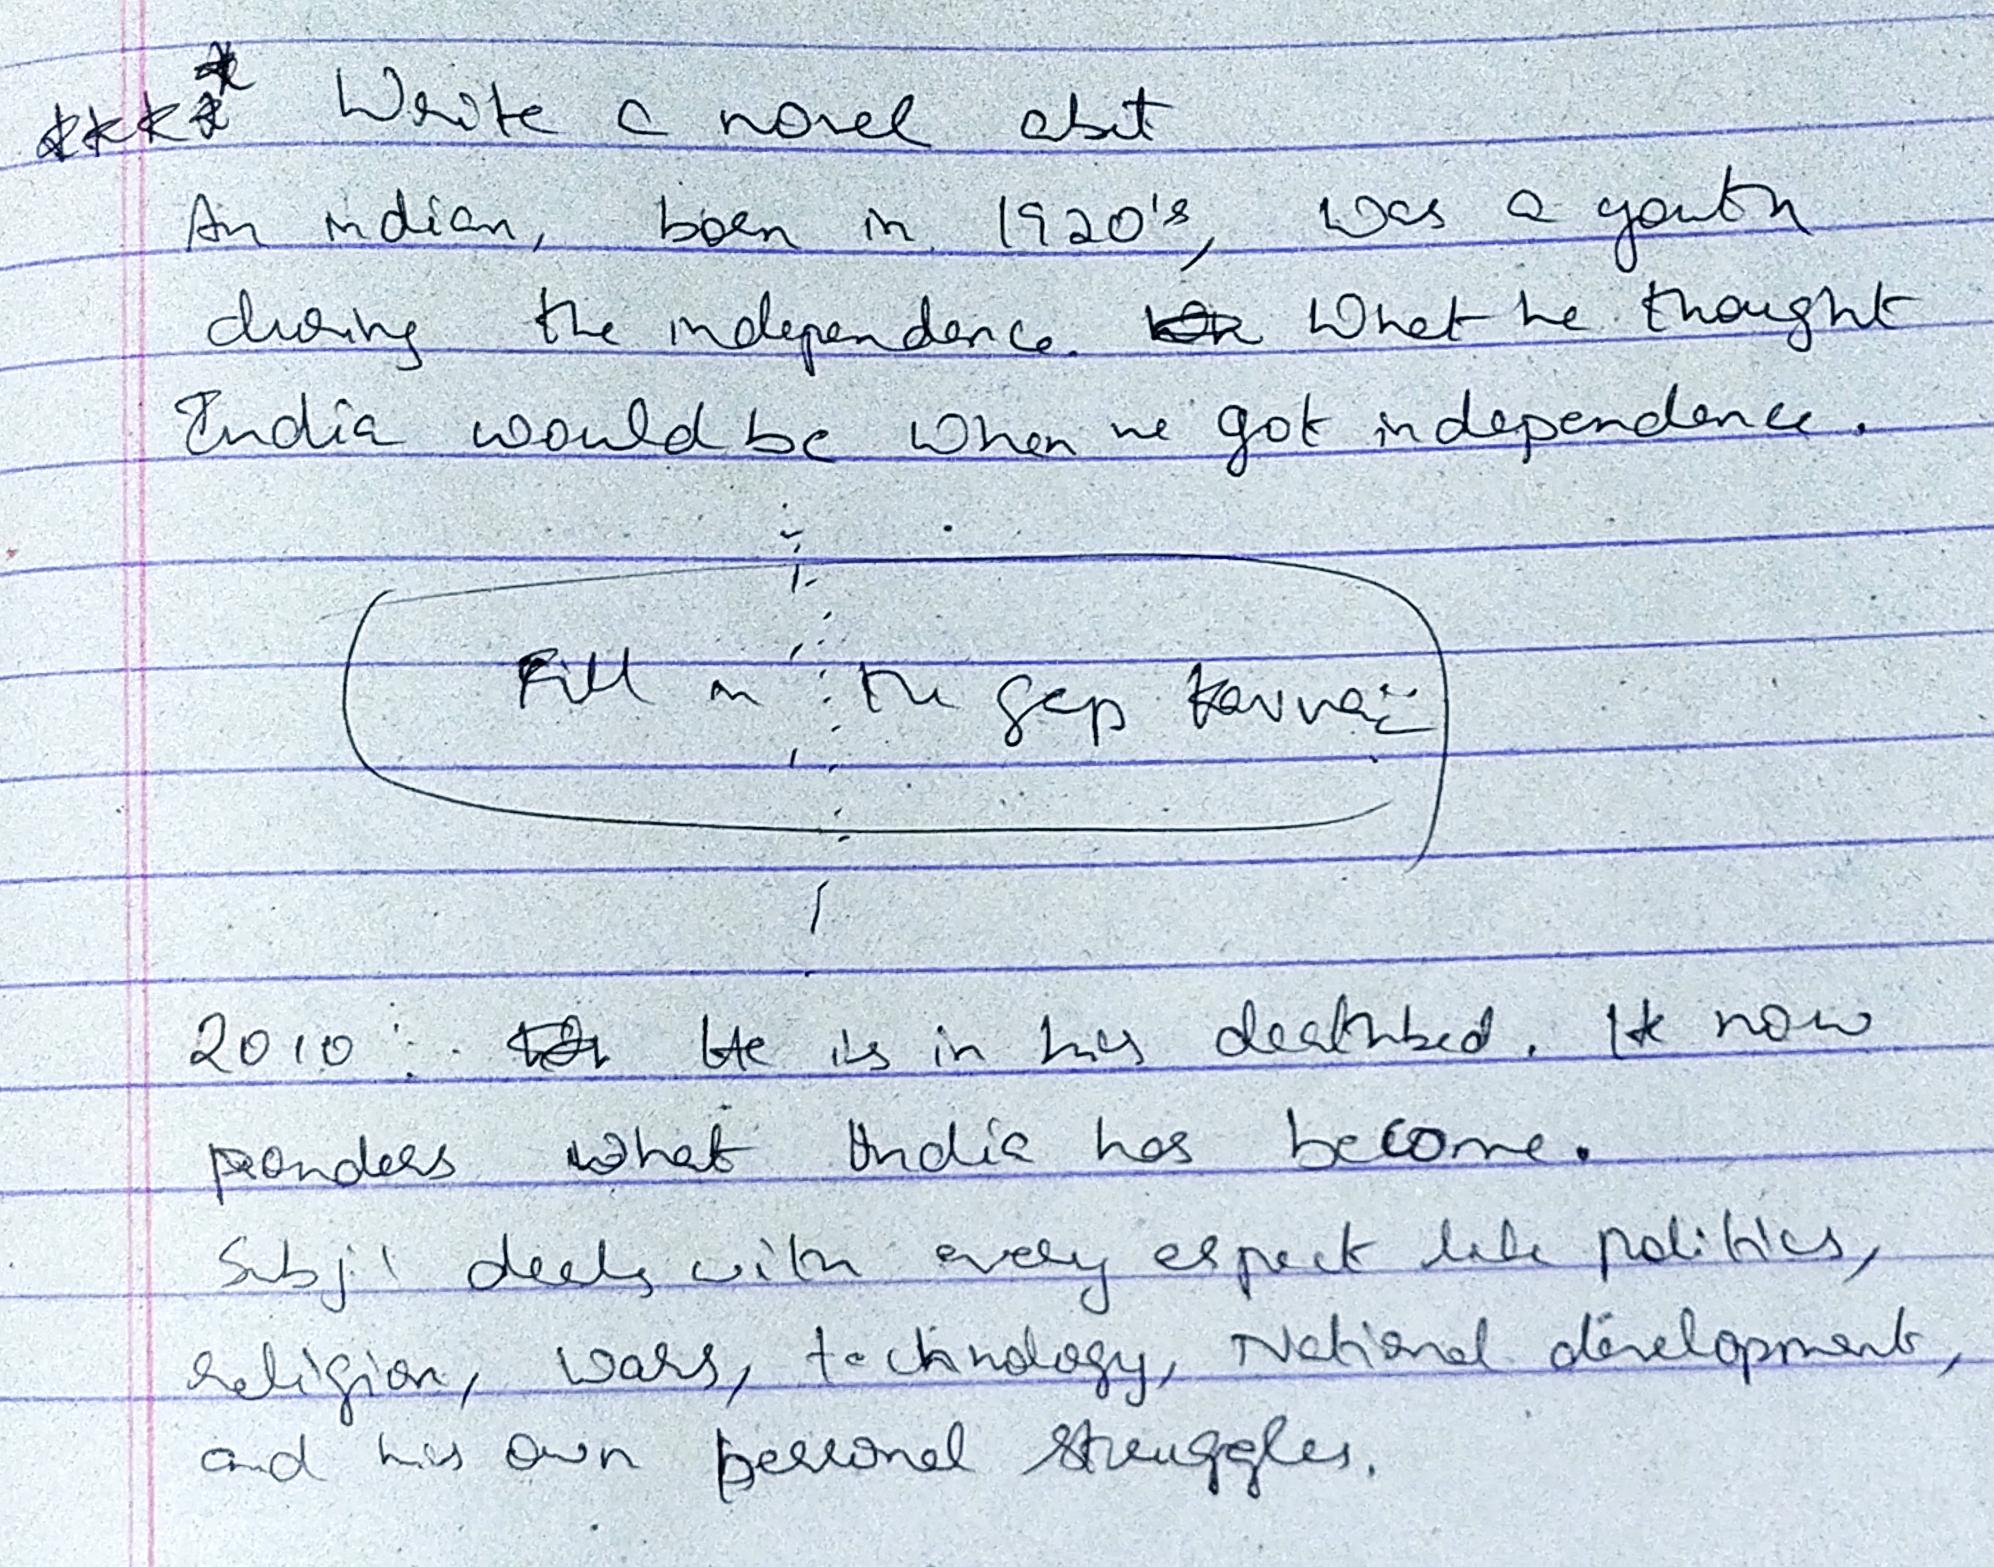 ***** Write a novel abt
An indian, born in 1920's, was a youth
during the independence. What he thought
India would be when we got independence.
Fill in the gap
2010: He is in his deathbed. He now
ponders what India has become.
Subj: deals with every aspect like politics,
religion, wars, technology, National development,
and his own personal struggles.